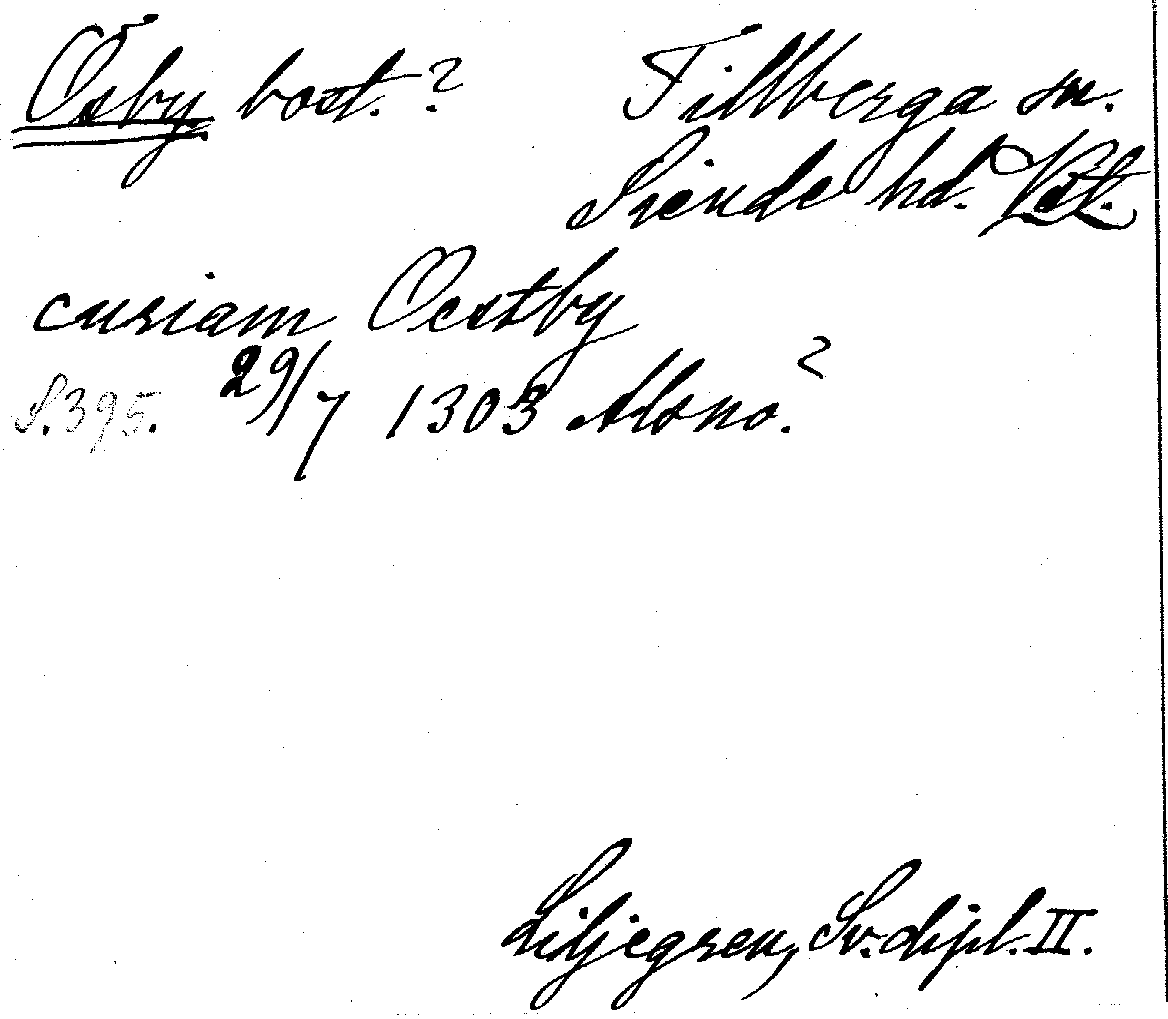 Ösby bost.? Tillberga sn.
Siende hd. Vstl.
curiam Oestby
S.395. 29/7 1303 Alsno.?
Liljegren, Sv. dipl. II.